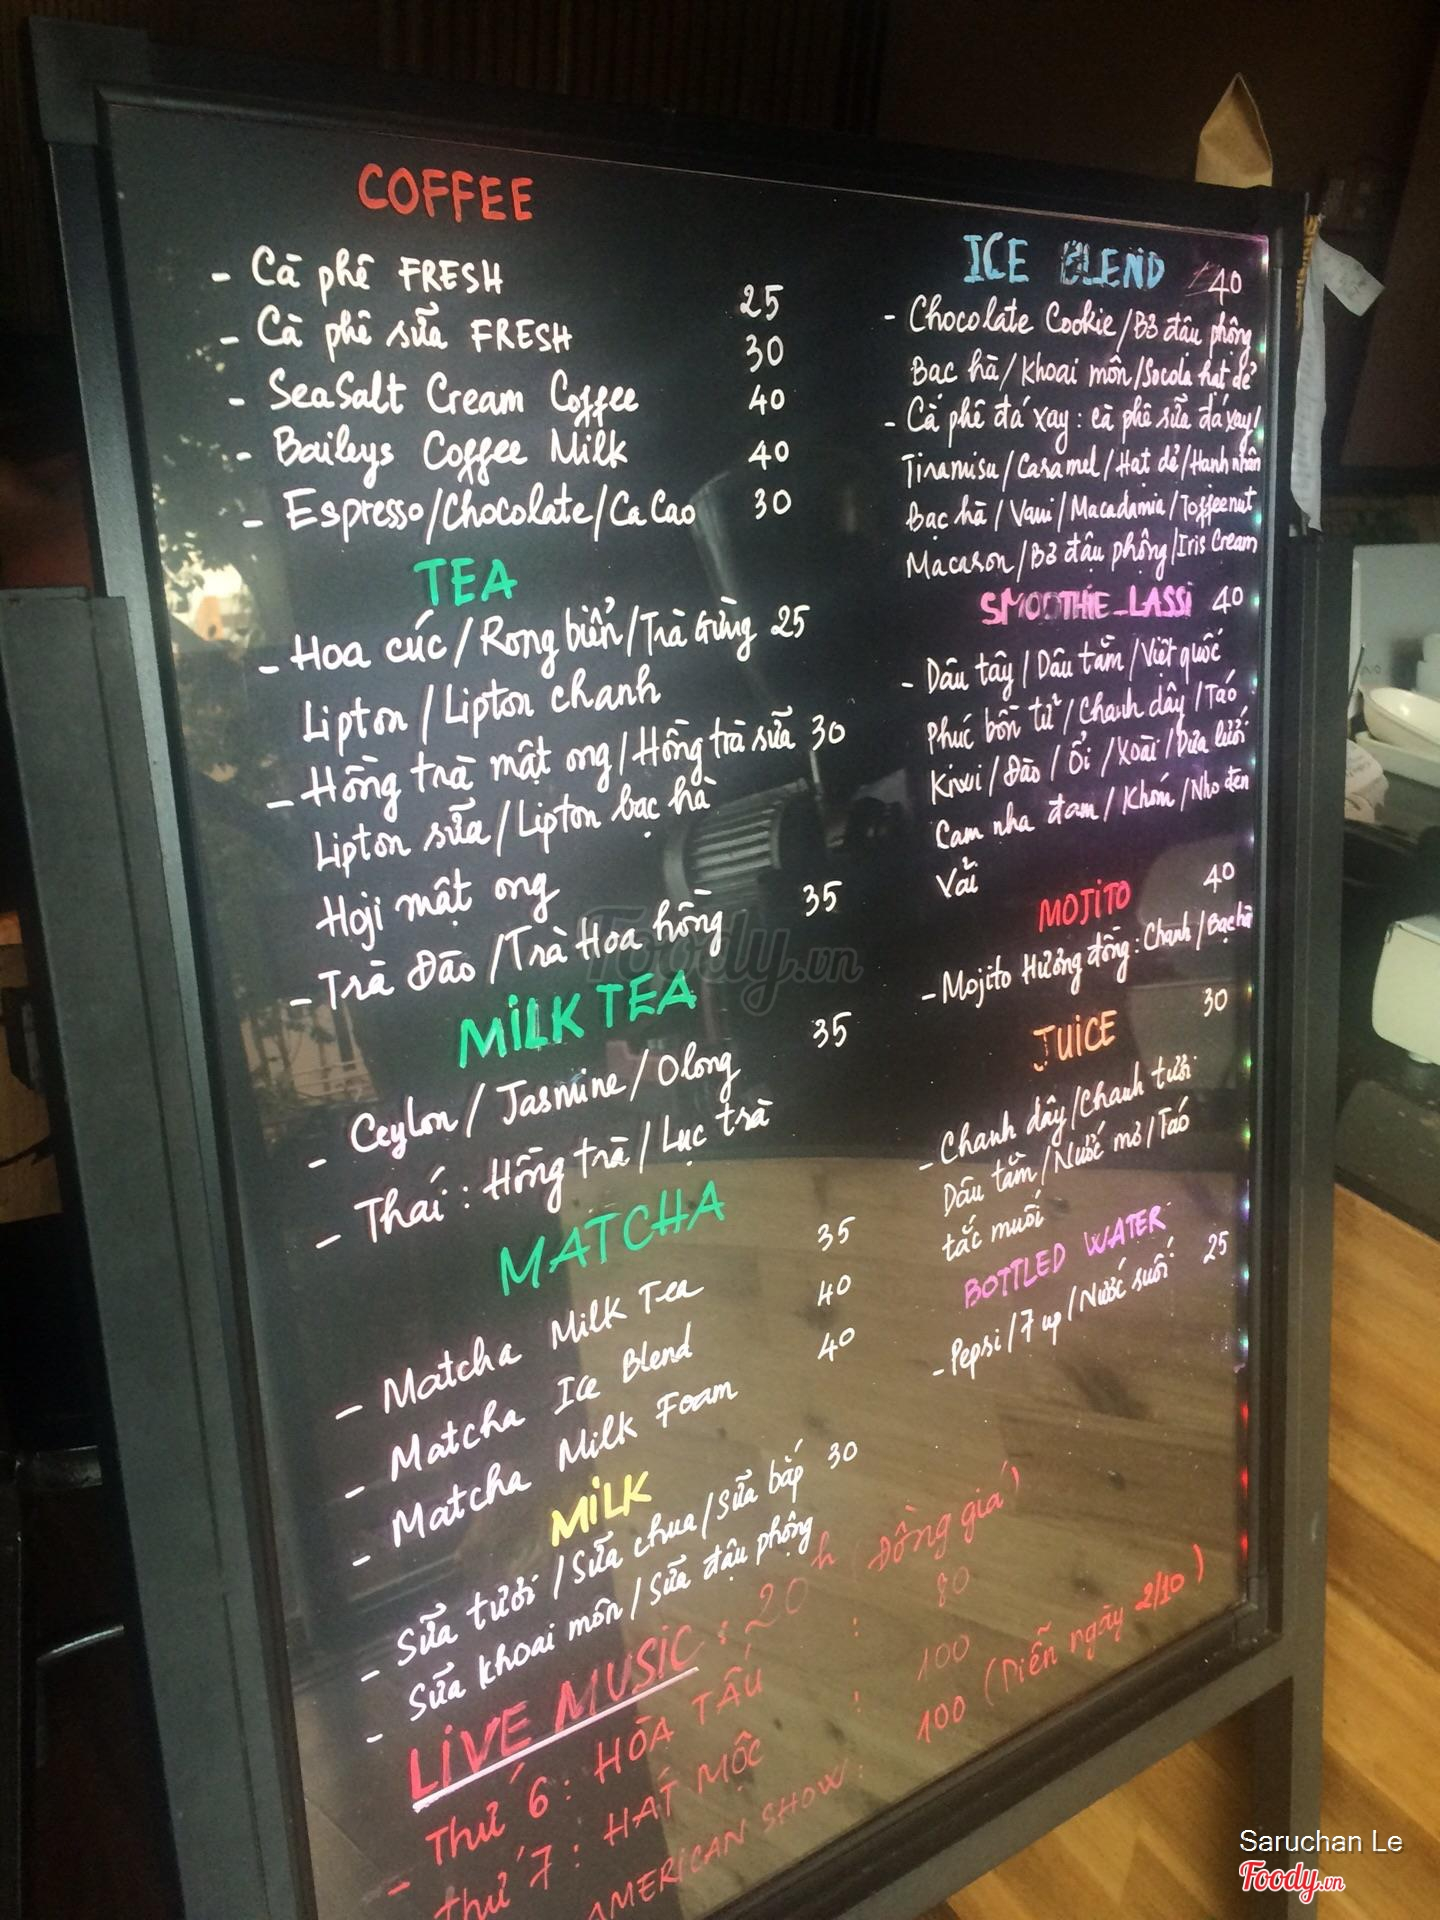 COFFEE
- Cà phê FRESH 25
- Cà phê sữa FRESH 30
- SeaSalt Cream Coffee 40
- Baileys Coffee Milk 40
- Espresso/Chocolate/CaCao 30
TEA
- Hoa cúc/Rong biển/Trà Gừng 25
Lipton/Lipton chanh
- Hồng trà mật ong/Hồng trà sữa 30
Lipton sữa/Lipton bạc hà
Hoji mật ong
- Trà Đào/Trà Hoa hồng 35
MILK TEA
- Ceylon/Jasmine/Olong 35
- Thái: Hồng trà/Lục trà
MATCHA
- Matcha Milk Tea 35
- Matcha Ice Blend 40
- Matcha Milk Foam 40
MILK
- Sữa tươi/Sữa chua/Sữa bắp 30
- Sữa khoai môn/Sữa đậu phộng
LIVE MUSIC: 20h (Đồng giá)
- Thứ 6: HÒA TẤU : 80
thứ 7: HÁT MỘC : 100
AMERICAN SHOW: 100 (Diễn ngày 2/10)
ICE BLEND 40
- Chocolate Cookie/Bơ đậu phộng
Bạc hà/Khoai môn/Socola hạt dẻ
- Cà phê đá xay: cà phê sữa đá xay/
Tiramisu/Caramel/Hạt dẻ/Hạnh nhân
Bạc hà/Vani/Macadamia/Toffeenut
Macaron/Bơ đậu phộng/Iris Cream
SMOOTHIE_LASSI 40
- Dâu tây/Dâu tằm/Việt quốc
Phúc bồn tử/Chanh dây/Táo
Kiwi/Đào/Ổi/Xoài/Dưa lưới
Cam nha đam/Khóm/Nho đen
Vải
MOJITO 40
- Mojito Hương đồng: Chanh/Bạc hà
JUICE 30
- Chanh dây/Chanh tươi
Dâu tằm/Nước mơ/Táo
tắc muối
BOTTLED WATER 25
- Pepsi/7 up/Nước suối
Foody.vn
Saruchan Le
Foody.vn